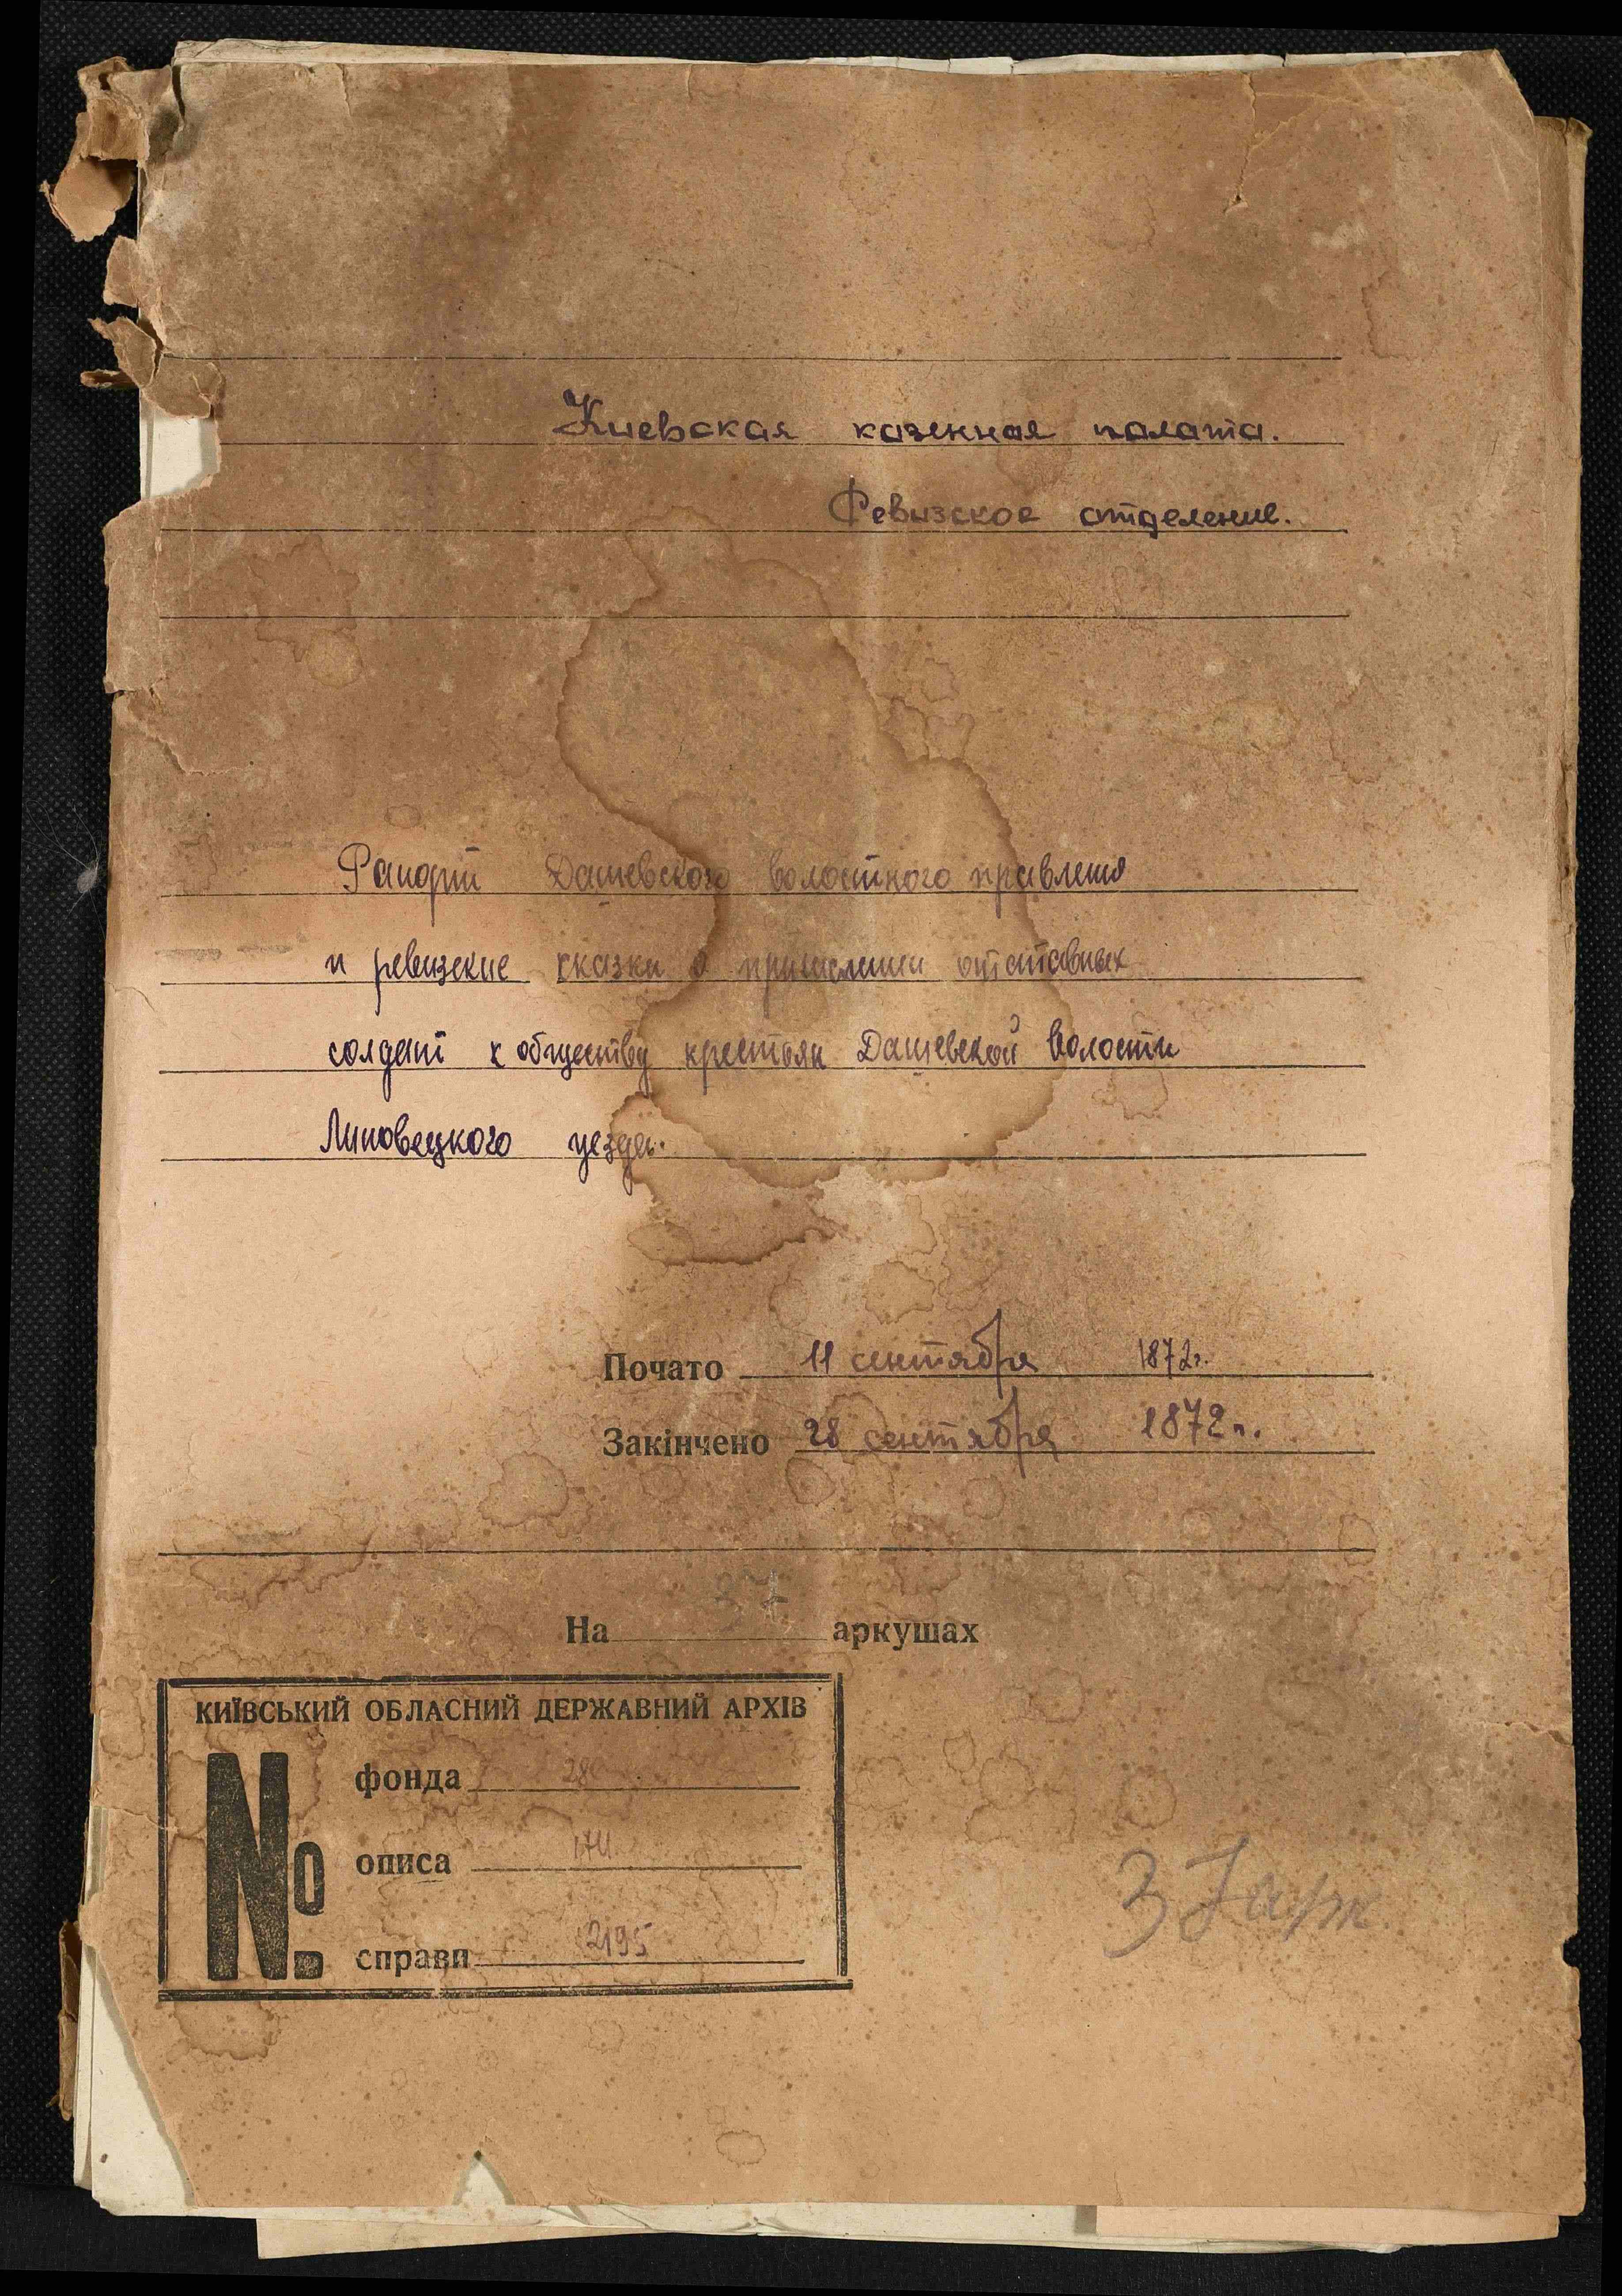 Киевская казенная палата.
Ревизское отделение.
Рапорт Дашевского волостного правления
и ревизские сказки о причислении отставных
солдат к обществу крестьян Дашевской волости
Липовецкого уезда.
Почато 11 сентября 1872г.
Закінчено 28 сентября 1872 г.
На 37 аркушах
КИЇВСЬКИЙ ОБЛАСНИЙ ДЕРЖАВНИЙ АРХІВ
№
фонда 280
описа 174
справи 2195